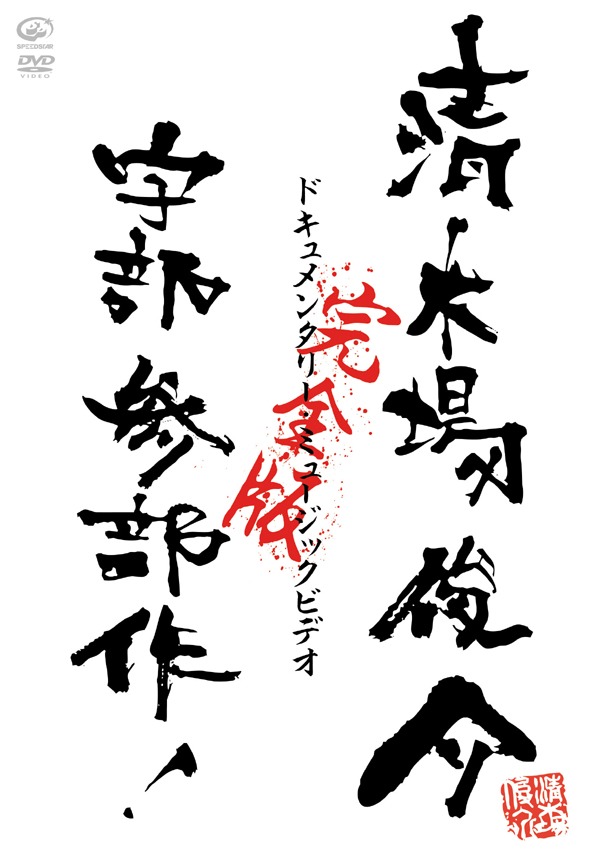 SPEEDSTAR
DVD
VIDEO
清木場俊介
ドキュメンタリー・ミュージックビデオ
完全版
宇部参部作!